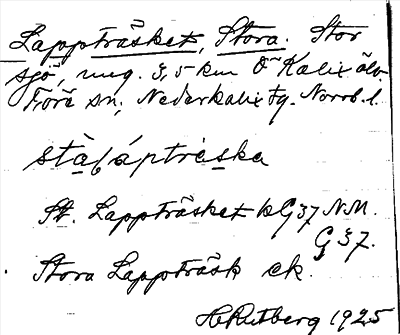 Lappträsket, Stora. Stor
sjö, ung. 3,5 km Ö Kalix älv.
Töre sn, Nederkalix tg. Norrb. l.
St. Lappträsket kG37 N.M.
G 37.
Stora Lappträsk ek.
H. Rutberg 1925